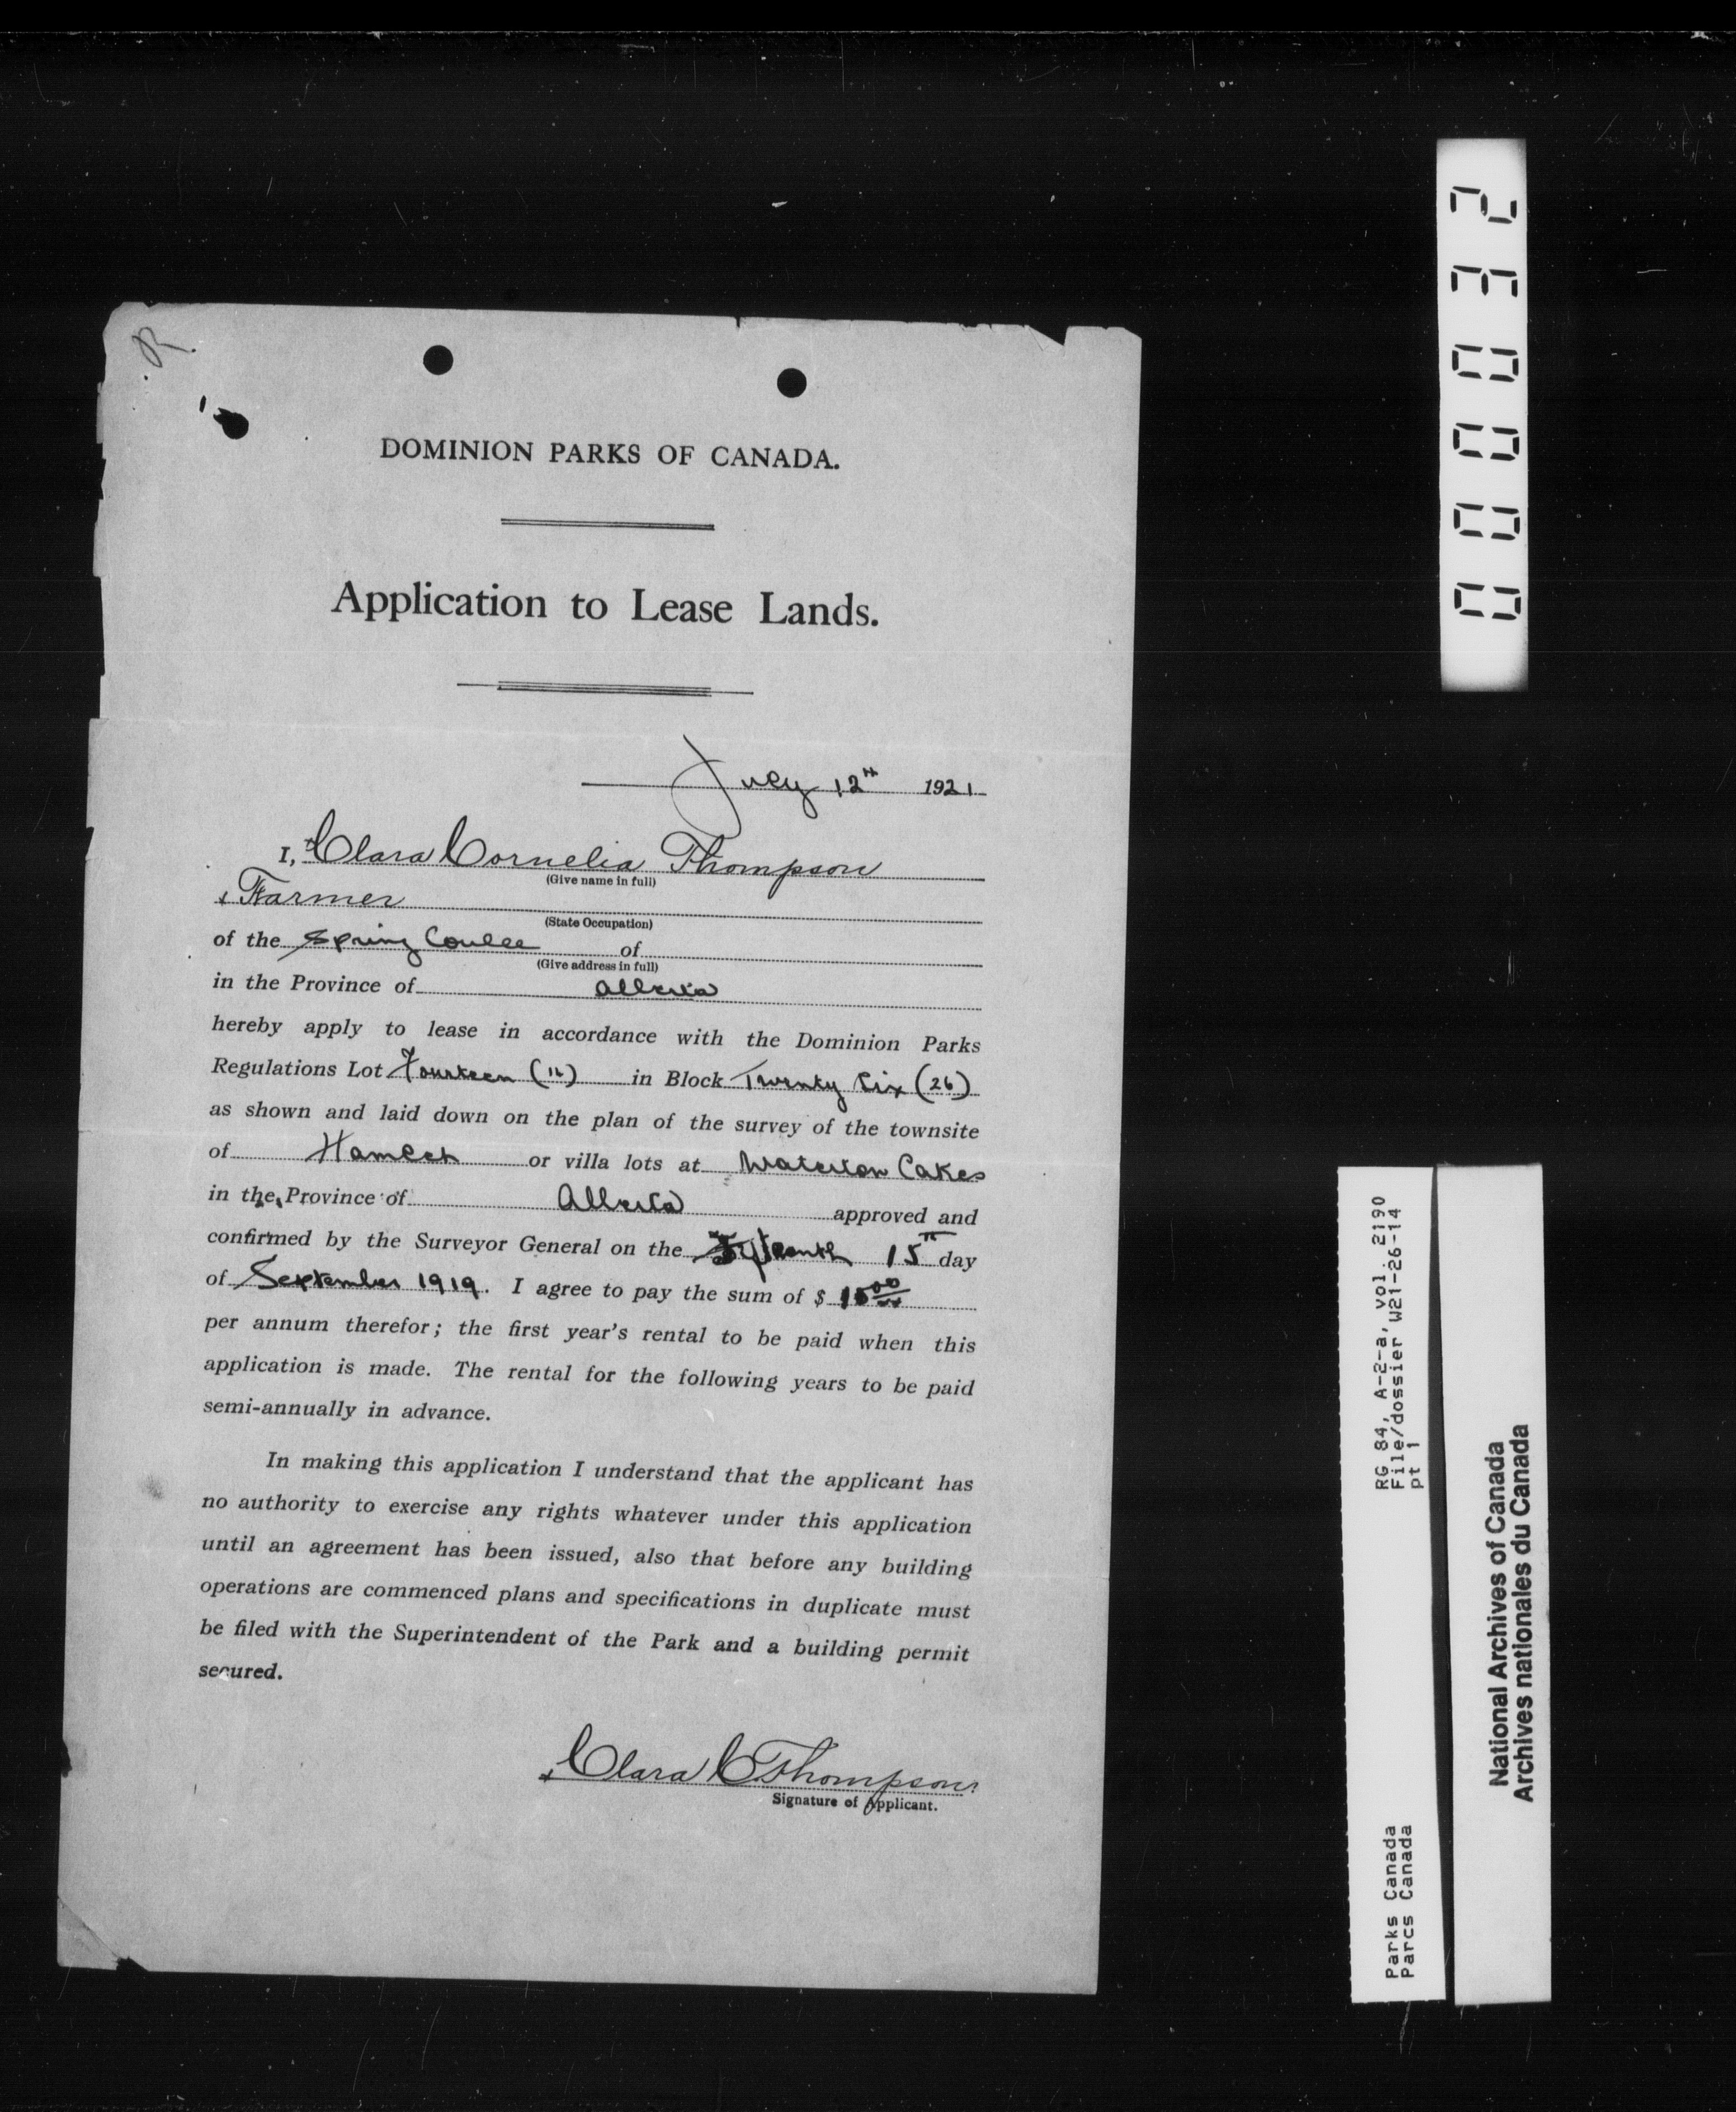 DOMINION PARKS OF CANADA.
Application to Lease Lands.
July 12th 1921
I, Clara Cornelia Thompson
(Give name in full)
Farmer
(State Occupation)
of the Spring Coulee of
(Give address in full)
in the Province of Alberta
hereby apply to lease in accordance with the Dominion Parks
Regulations Lot Fourteen (14) in Block Twenty Six (26)
as shown and laid down on the plan of the survey of the townsite
of Hamlet or villa lots at Waterton Lakes
in the Province of Alberta approved and
confirmed by the Surveyor General on the Fifteenth 15th day
of September 1919. I agree to pay the sum of $ 15 00
per annum therefor; the first year's rental to be paid when this
application is made. The rental for the following years to be paid
semi-annually in advance.
In making this application I understand that the applicant has
no authority to exercise any rights whatever under this application
until an agreement has been issued, also that before any building
operations are commenced plans and specifications in duplicate must
be filed with the Superintendent of the Park and a building permit
secured.
Clara C Thompson
Signature of Applicant.
000032
RG 84, A-2-a, vol. 2190
File/dossier W21-26-14
pt 1
Parks Canada
Parcs Canada
National Archives of Canada
Archives nationales du Canada